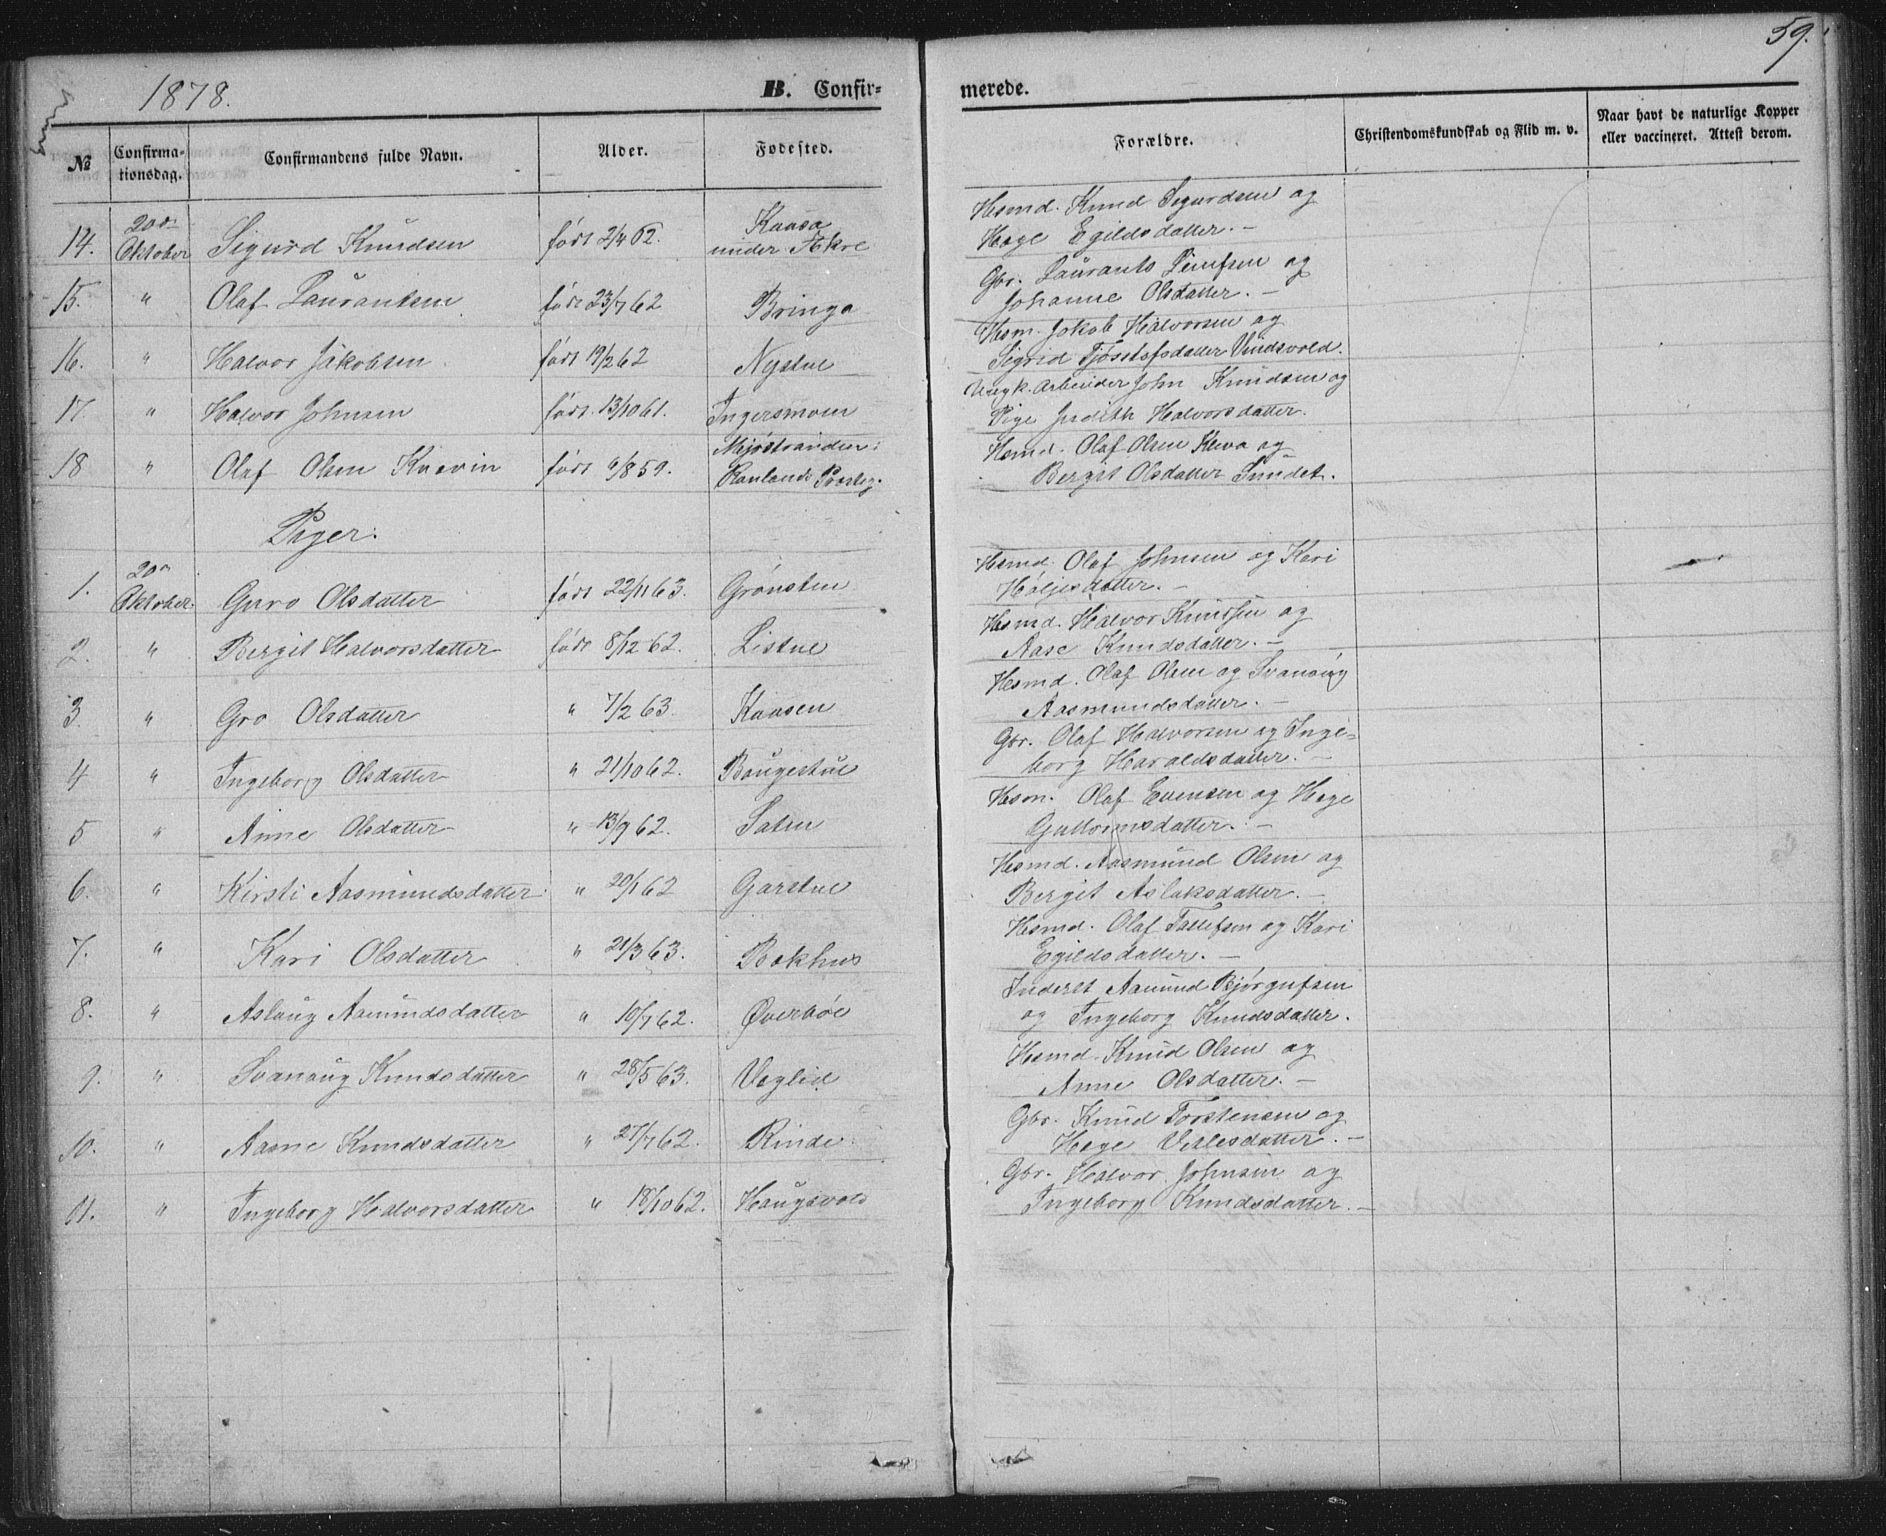 59.
1878.
B. Confir-
merede.
№
Confirma-
tionsdag.
Confirmandens fulde Navn.
Alder.
Fødested.
Forældre.
Christendomskundskab og Flid m. v.
Naar havt de naturlige Kopper
eller vaccineret. Attest derom.
14. 20de Oktober Sigurd Knudsen født 2/4 62. Kaasa under Akre Hsmd. Knud Sigurdsen og
Hæge Egildsdatter. —
15. " Olaf Laurantsen født 23/7 62 Bringa Gbr. Laurants
Johanne Olsdatter. —
16. " Halvor Jakobsen født 19/2 62 Nystue Hsm. Jakob Halvorsen og
Sigrid Tjøstofsdatter Vindsvold.
17 " Halvor Johnsen født 13/10 61. Ingersmoen Ungk. Arbeider John Knudsen og
Pige Judith Halvorsdatter.
18 " Olaf Olsen Kvævin født 6/8 59. Mjøstranden: Raulands Præsteg. Hsmd. Olaf Olsen Kleva og
Bergit Olsdatter Sundet.
Piger:
1. 20de Oktober. Guro Olsdatter født 22/11 63. Grønsten Hsmd. Olaf Johnsen og Kari
Høljesdatter. —
2. " Bergit Halvorsdatter født 8/12 62. Listue Hsmd. Halvor Knudsen og
Aase Knudsdatter. —
3. " Gro Olsdatter " 7/2 63. Kaasen Hsmd. Olaf Olsen og Svanaug
Aasmundsdatter. —
4 " Ingeborg Olsdatter " 21/10 62. Baugestue Gbr. Olaf Halvorsen og Inge=
borg Haraldsdatter. —
5 " Anne Olsdatter " 13/9 62. Saten Hsm. Olaf Evensen og Hæge
Guttormsdatter. —
6. " Kirsti Aasmundsdatter " 20/1 62 Garstue Hsmd. Aasmund Olsen og
Bergit Aslaksdatter. —
7. " Kari Olsdatter " 21/3 63. Bakhus Hsmd. Olaf Tallefsen og Kari
Egildsdatter. —
8. " Aslaug Aamundsdatter " 10/7 62. Øverbøe Inderst Aamund Bjørgufsen
og Ingeborg Knudsdatter.
9. " Svanaug Knudsdatter " 28/5 63. Væglid Hsmd. Knud Olsen og
Anne Olsdatter. —
10. " Aasne Knudsdatter " 27/7 62. Rinde Gbr. Knud Torstensen og
Hæge Vetlesdatter. —
11. " Ingeborg Halvorsdatter " 18/10 62. Haugsvold Gbr. Halvor Johnsen og
Ingeborg Knudsdatter. —